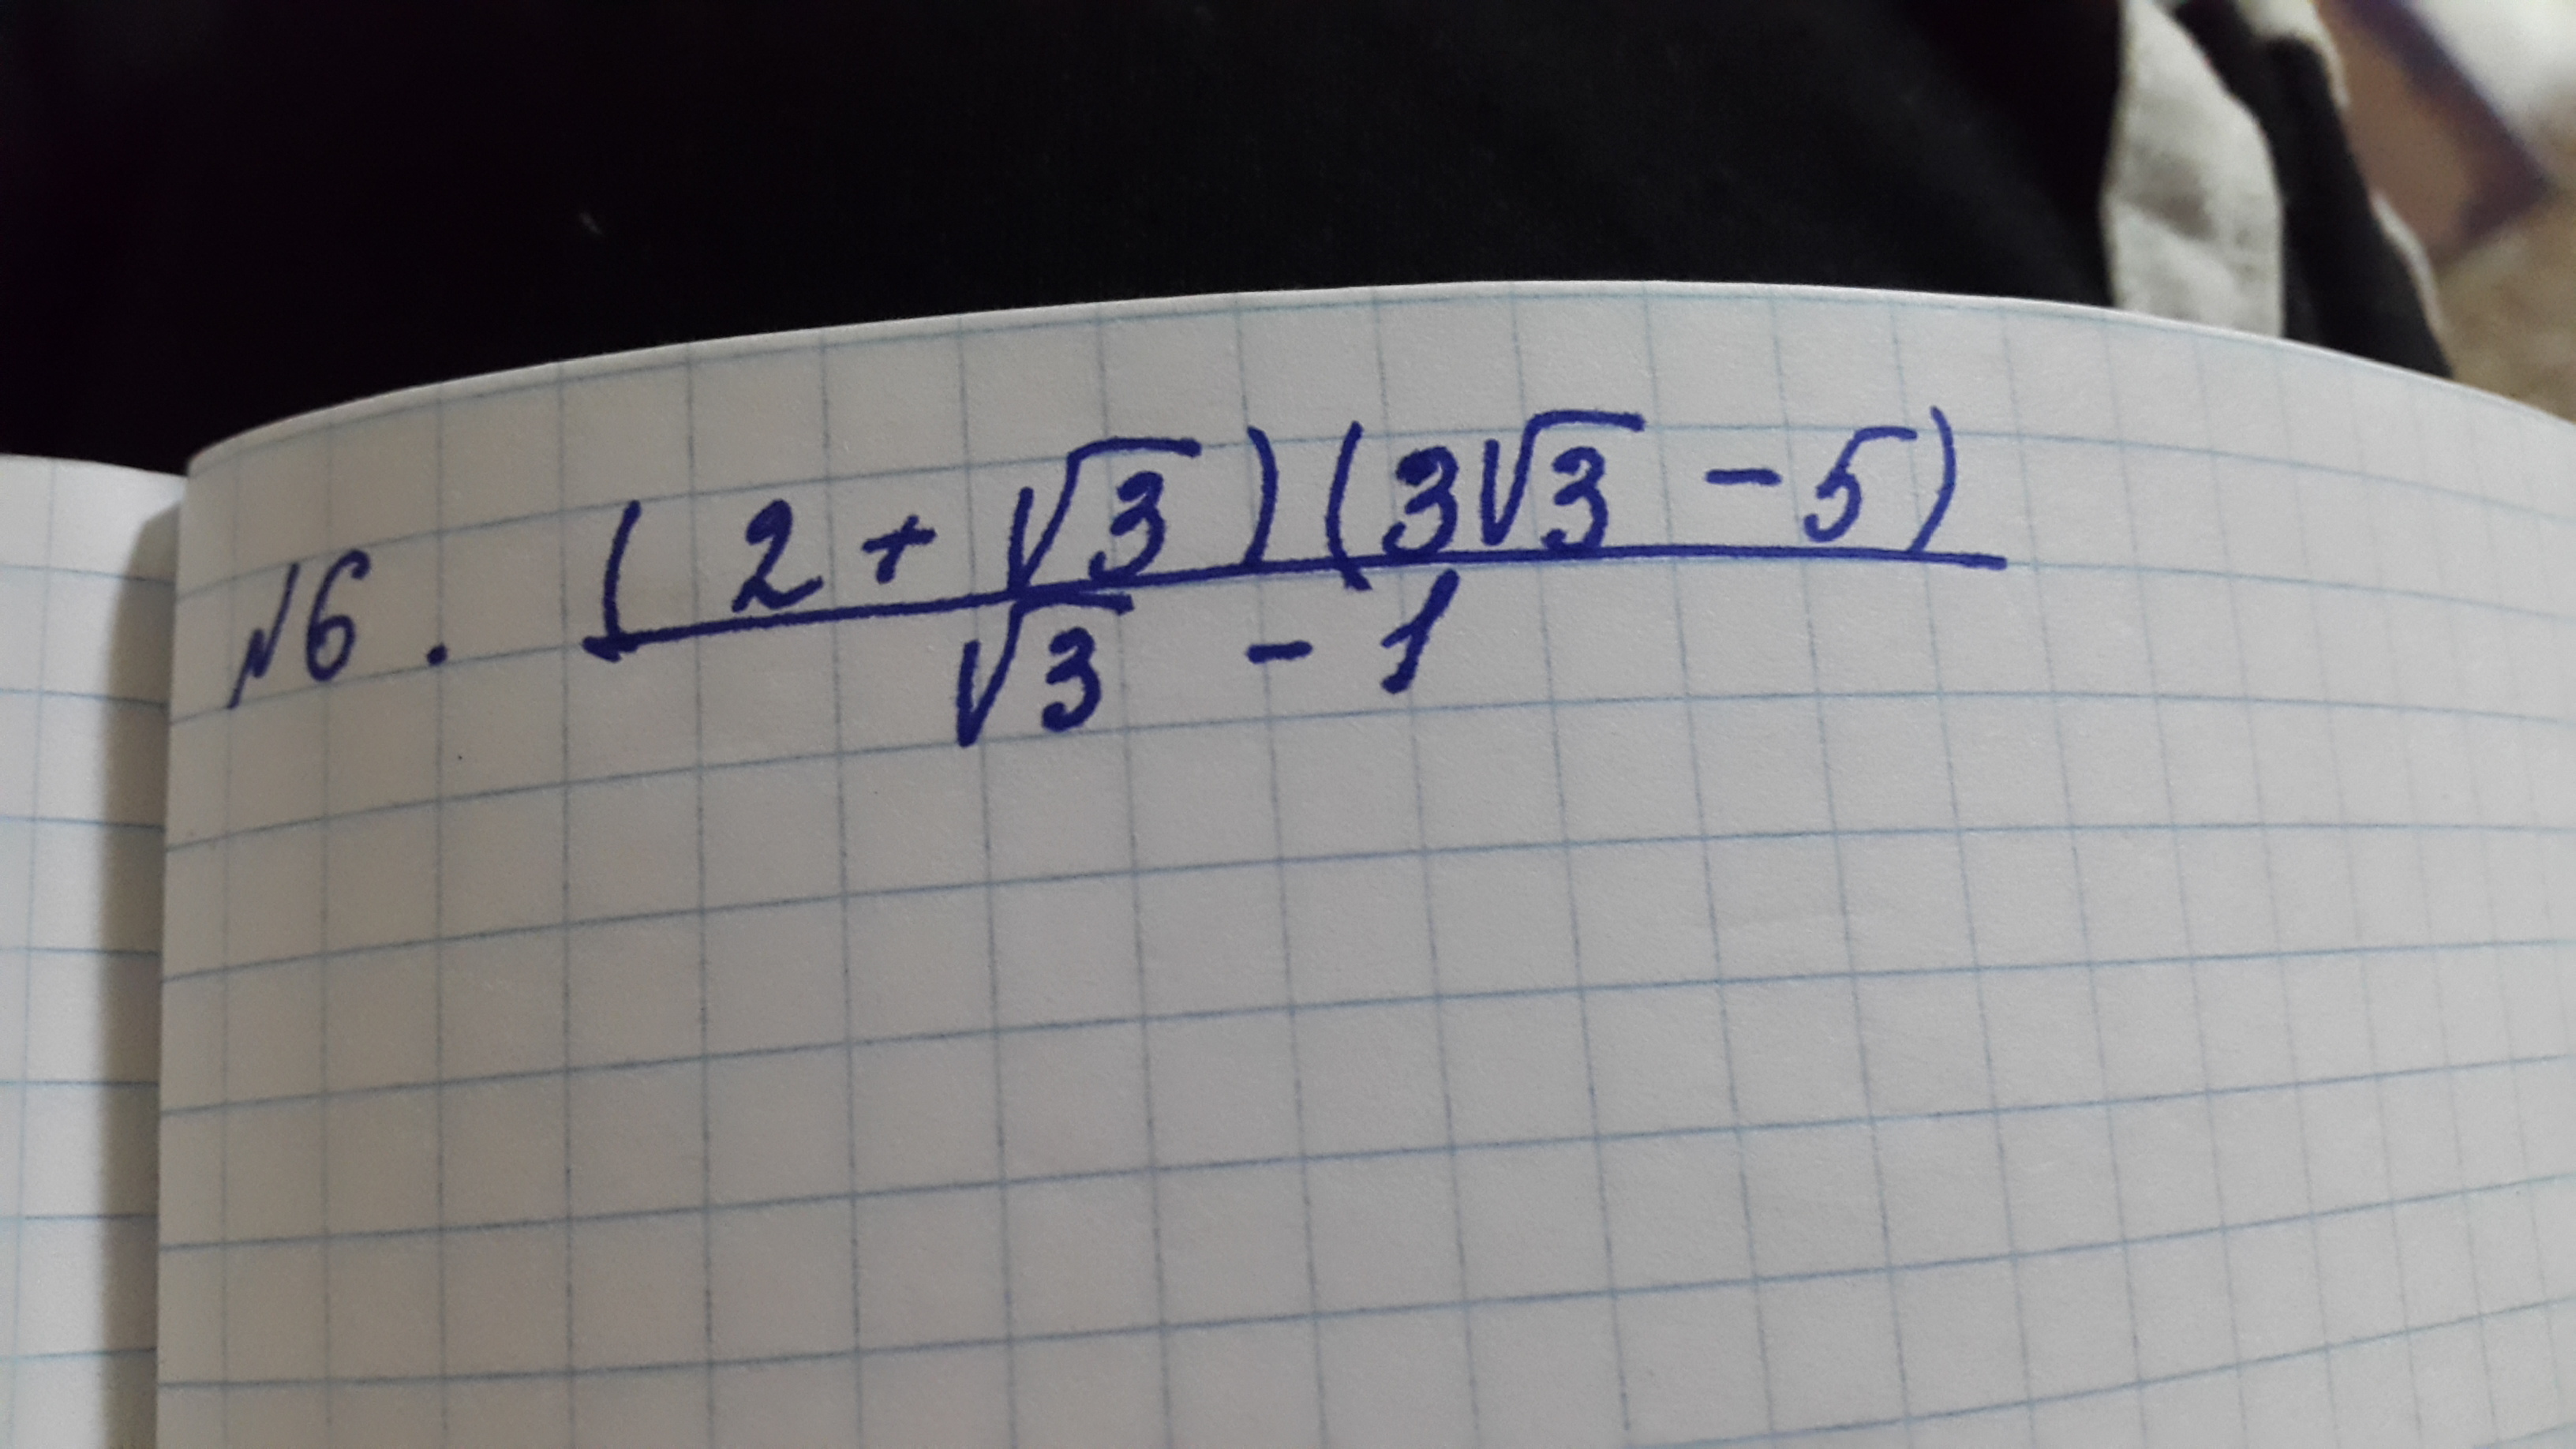 №6. (2 + √3)(3√3 - 5)
√3 - 1